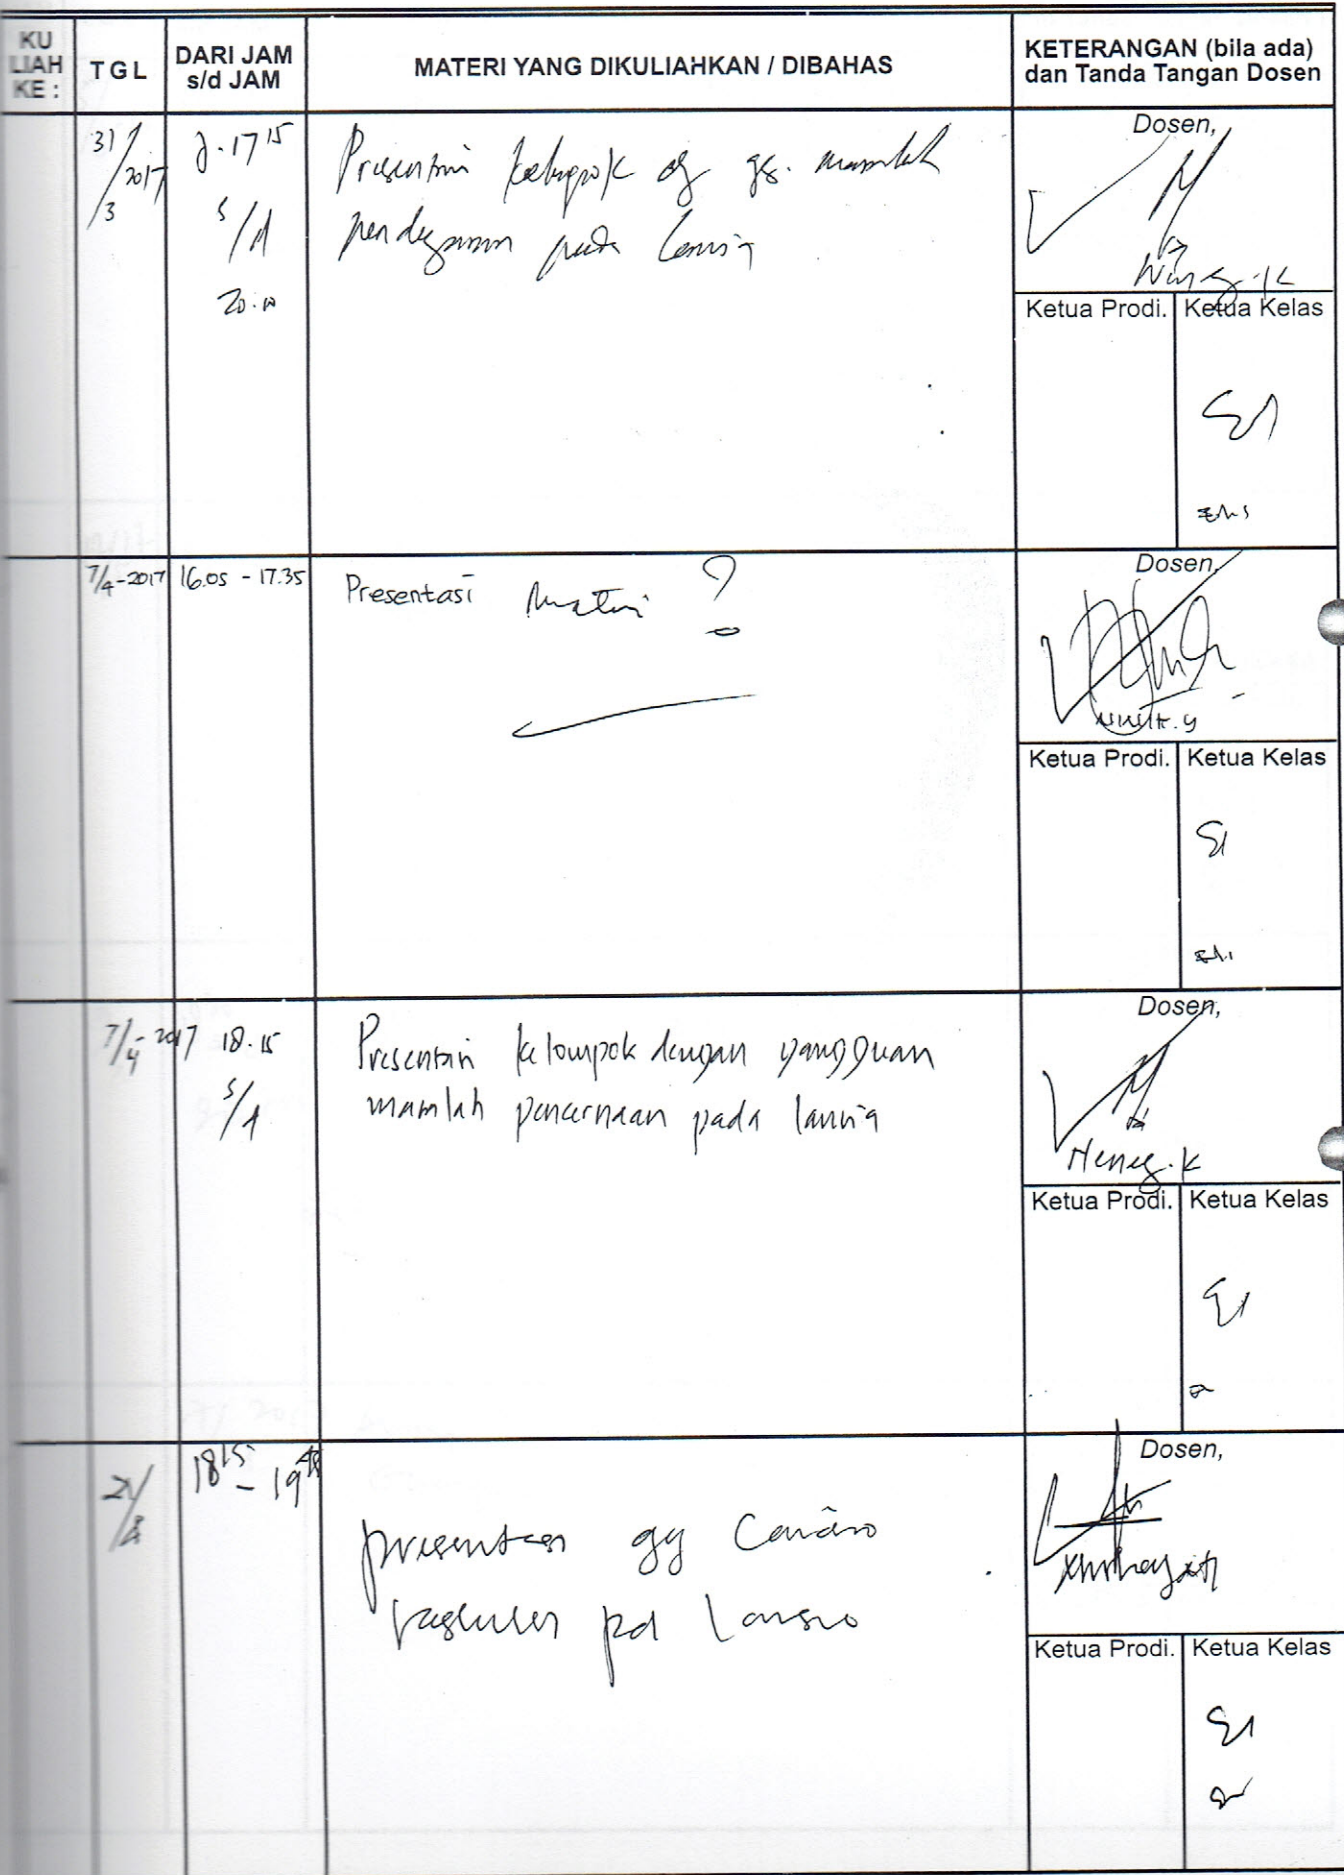 KU
LIAH
KE :
TGL
DARI JAM
s/d JAM
MATERI YANG DIKULIAHKAN / DIBAHAS
KETERANGAN (bila ada)
dan Tanda Tangan Dosen
31/3 2017
17 15
s/d
Presentasi kelompok dg gg. masalah
pada lansia
Dosen,
Ketua Prodi.
Ketua Kelas
7/4-2017
16.05 - 17.35
Presentasi Materi ?
Dosen,
Ketua Prodi.
Ketua Kelas
7/4-2017
18.15
s/d
Presentasi kelompok dengan gangguan
masalah pencernaan pada lansia
Dosen,
Ketua Prodi.
Ketua Kelas
18 15 - 19 45
presentasi gg Cardio
vaskuler pd Lansia
Dosen,
Ketua Prodi.
Ketua Kelas